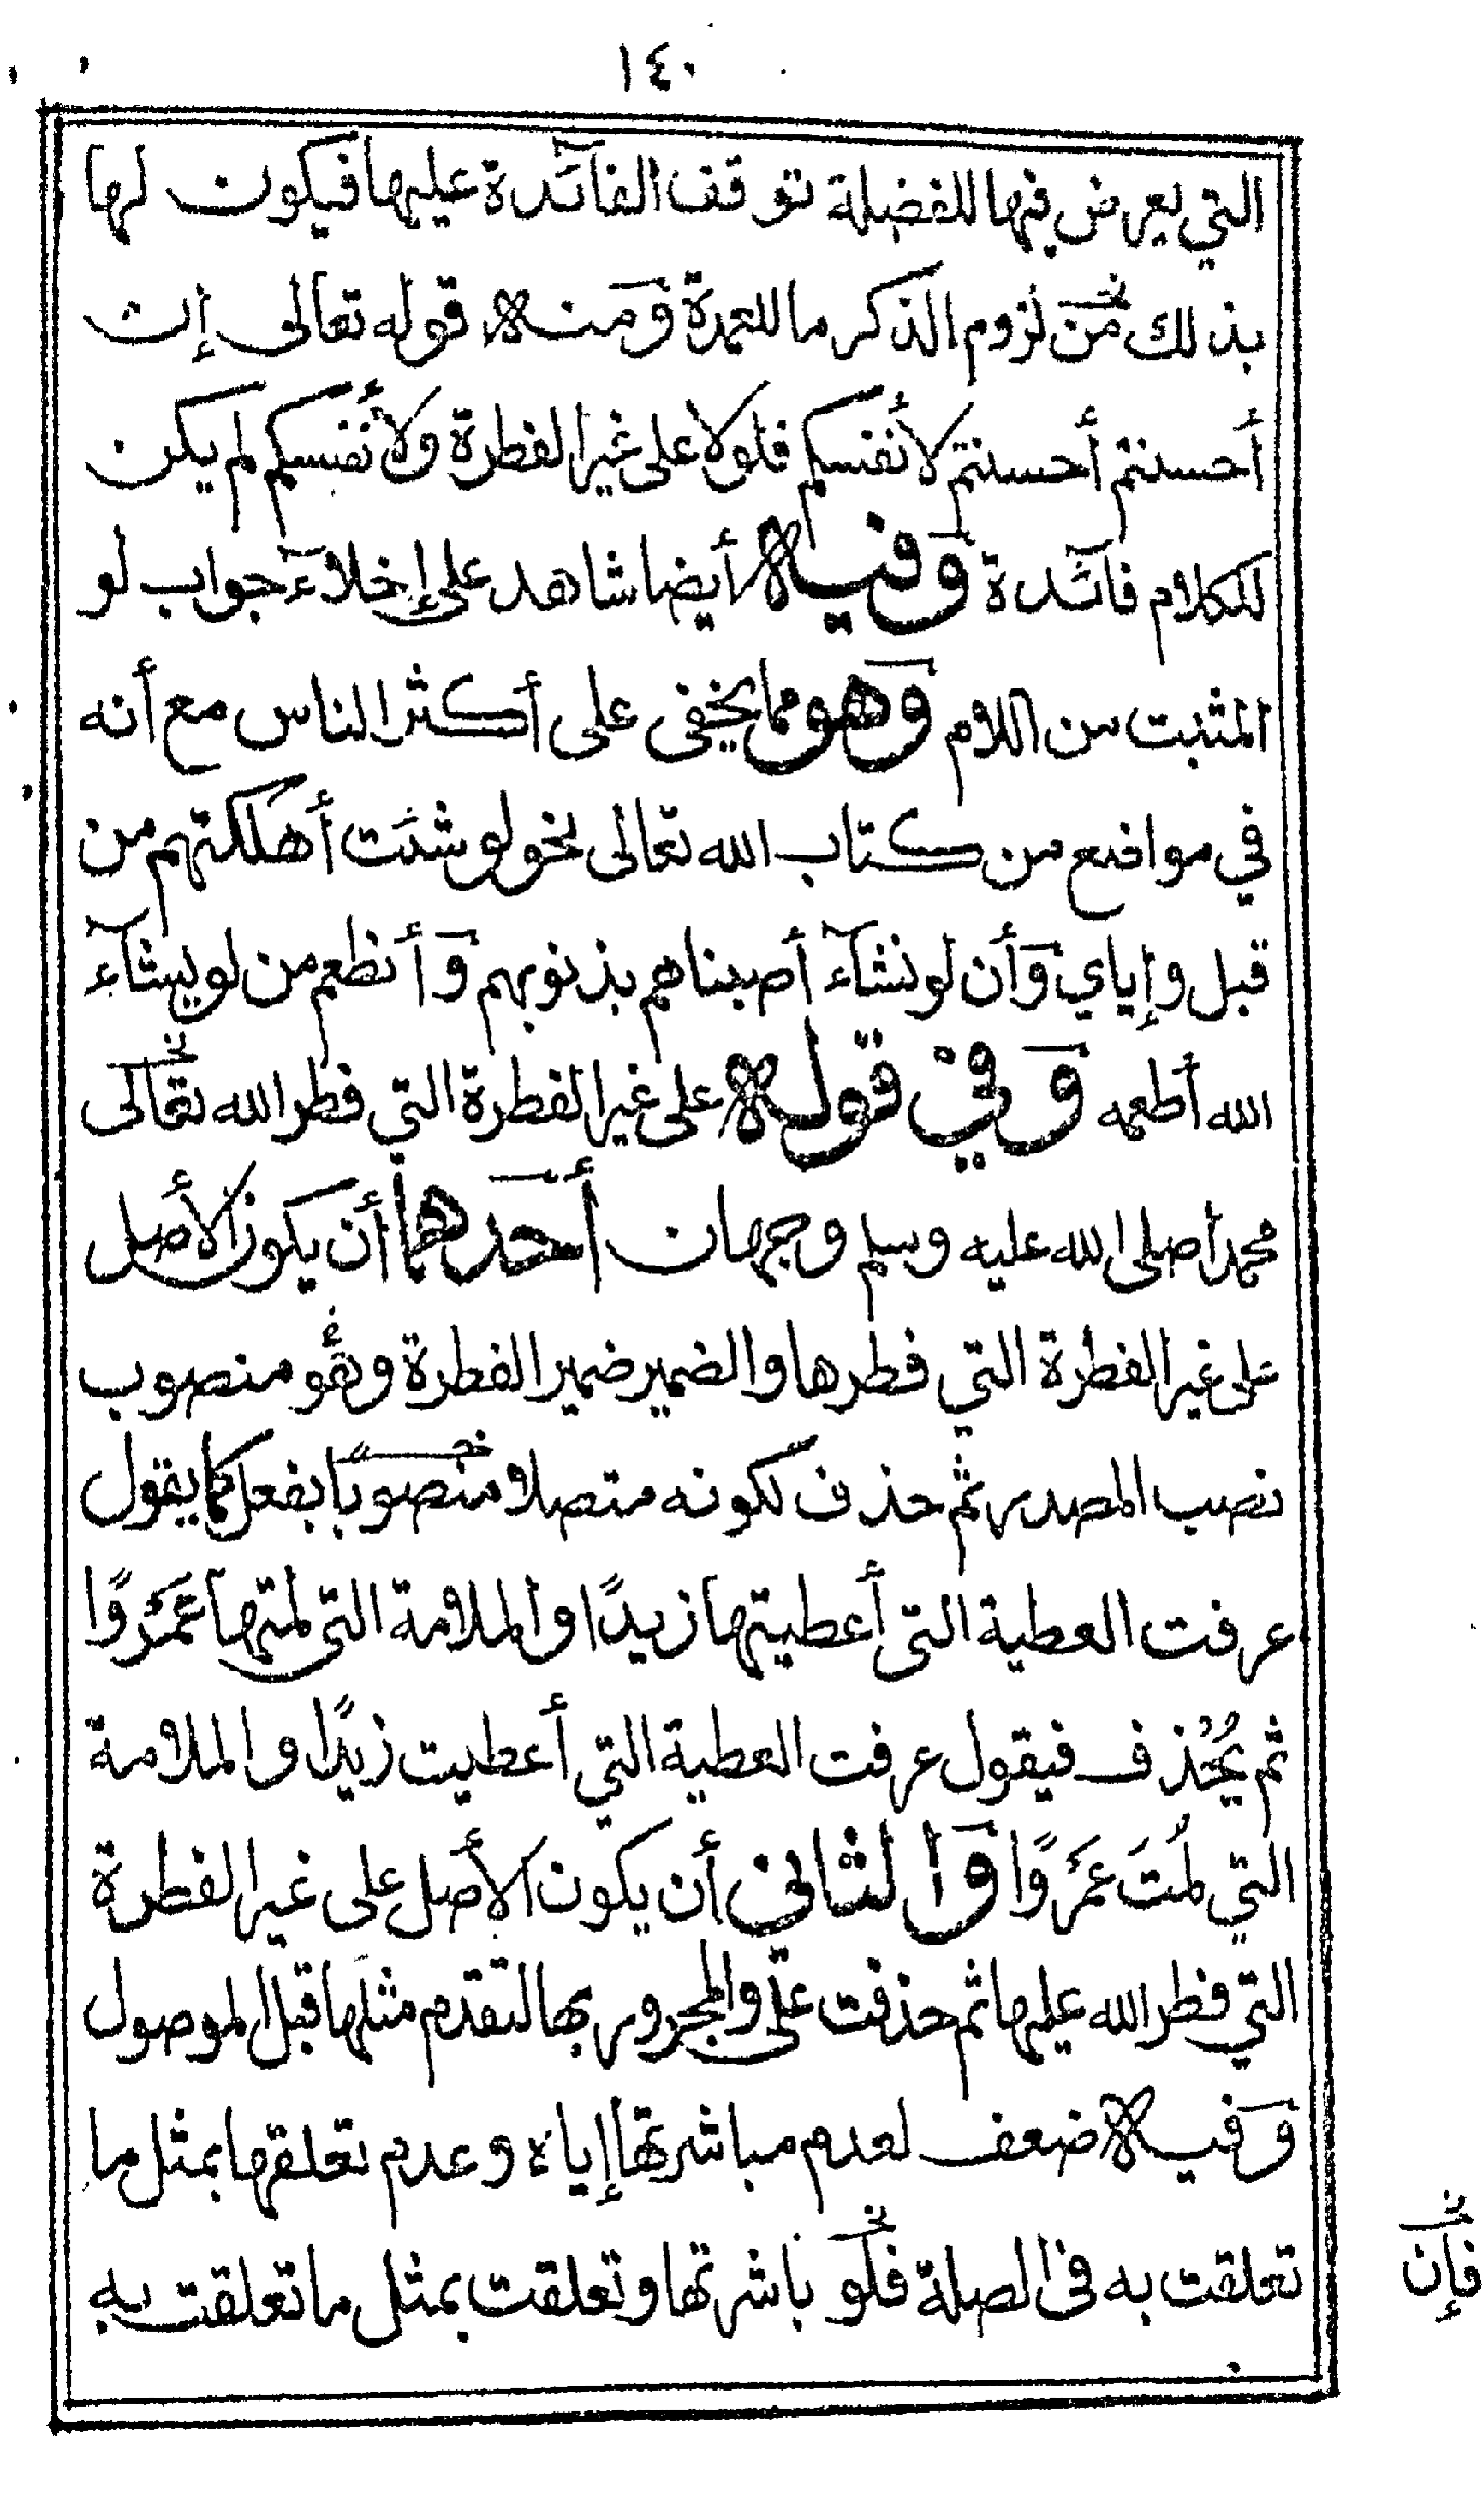 ١٤٠
التي يعرض فيها للفضلة توقف الفائدة عليها فيكون لها
بذلك من لزوم الذكر ما للعمدة ومنه قوله تعالى إن
أحسنتم أحسنتم لأنفسكم فلولا على غير الفطرة ولأنفسكم لم يكن
للكلام فائدة وفيه أيضا شاهد على إخلاء جواب لو
المثبت من اللام وهو مما يخفى على أكثر الناس مع أنه
في مواضع من كتاب الله تعالى نحو لو شئت أهلكتهم من
قبل وإياي وأن لو نشآء أصبناهم بذنوبهم وأنطعم من لو يشآء
الله أطعمه وفي قوله على غير الفطرة التي فطر الله تعالى
محمدا صلى الله عليه وسلم وجهان أحدهما أن يكون الأصل
على غير الفطرة التي فطرها والضمير ضمير الفطرة وهو منصوب
نصب المصدر ثم حذف لكونه متصلا منصوبًا بفعل كما يقول
عرفت العطية التي أعطيتها زيدًا والملامة التي لمتها عَمْرًوا
ثم يُحْذف فيقول عرفت العطية التي أعطيت زيدًا والملامة
التي لُمْتَ عَمْرًوا والثاني أن يكون الأصل على غير الفطرة
التي فطر الله عليها ثم حذفت على والمجرور بها لتقدم مثلها قبل الموصول
وفيه ضعف لعدم مباشرتها إياه وعدم تعلقها بمثل ما
تعلقت به في الصلة فلو باشرتها وتعلقت بمثل ما تعلقت به
فإن